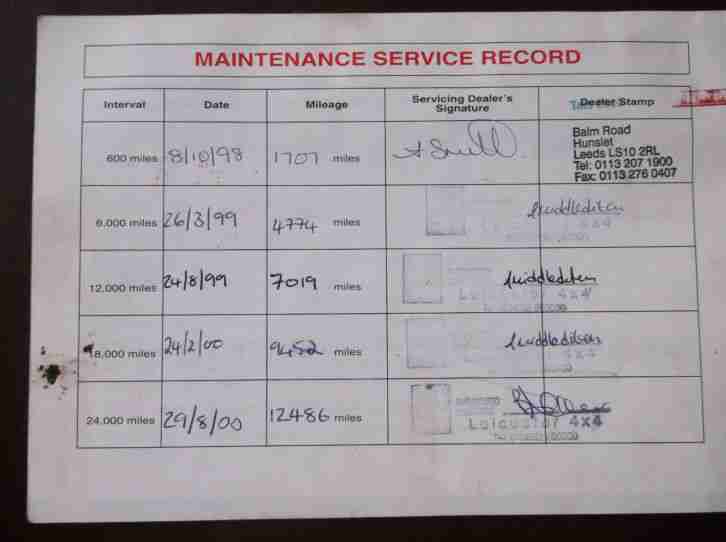 MAINTENANCE SERVICE RECORD
Interval Date Mileage Servicing Dealer's Signature Dealer Stamp
600 miles 8/10/98 1707 miles
Balm Road
Hunslet
Leeds LS10 2RL
Tel: 0113 207 1900
Fax: 0113 276 0407
6,000 miles 26/3/99 4774 miles
4x4
12,000 miles 24/8/99 7019 miles
Leicester 4x4
18,000 miles 24/2/00 9452 miles
4x4
24,000 miles 29/8/00 12486 miles
Leicester 4x4